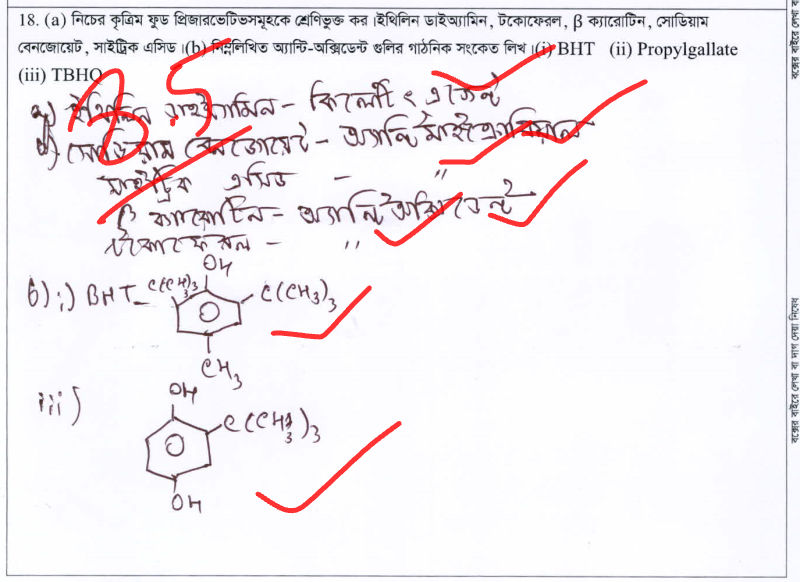 18. (a) নিচের কৃত্রিম ফুড প্রিজারভেটিভসমূহকে শ্রেণিভুক্ত কর।ইথিলিন ডাইঅ্যামিন, টকোফেরল, β ক্যারোটিন, সোডিয়াম
বেনজোয়েট, সাইট্রিক এসিড।(b) নিম্নলিখিত অ্যান্টি-অক্সিডেন্ট গুলির গাঠনিক সংকেত লিখ।(i) BHT (ii) Propylgallate
(iii) TBHQ
3.5
a) ইথিলিন ডাইঅ্যামিন - কিলেটিং এজেন্ট
সোডিয়াম বেনজোয়েট - অ্যান্টিমাইক্রোবিয়াল
সাইট্রিক এসিড - "
β ক্যারোটিন - অ্যান্টিঅক্সিডেন্ট
টকোফেরল - "
b) i) BHT - C(CH3)3 OH C(CH3)3
CH3
iii) OH
C(CH3)3
OH
বক্সের বাইরে লেখা বা দাগ দেয়া নিষেধ